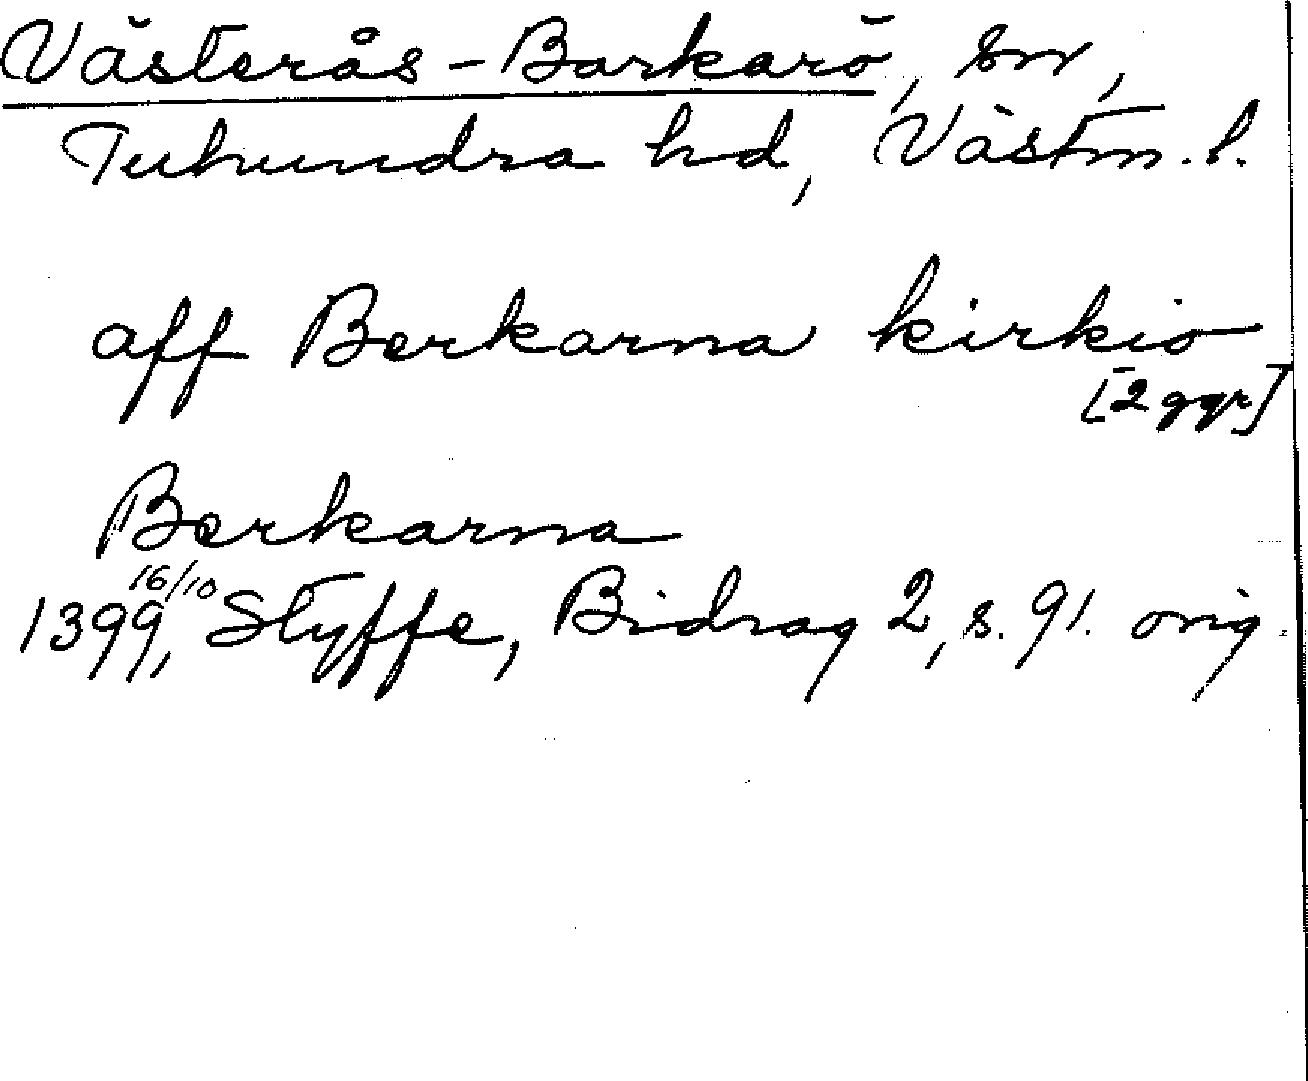 Västerås-Barkarö, sn,
Tuhundra hd, Västm. l.
aff Berkarna kirkio
[2 ggr]
Berkarna
1399 16/10, Styffe, Bidrag 2, s. 91. orig.